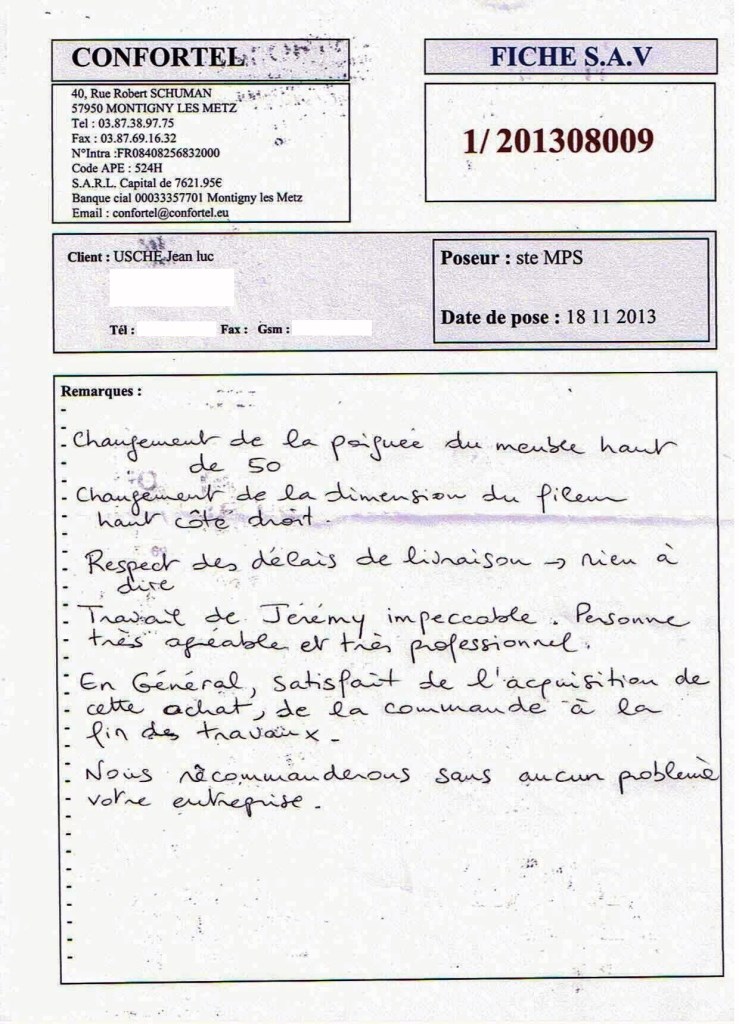 CONFORTEL
FICHE S.A.V
40, Rue Robert SCHUMAN
57950 MONTIGNY LES METZ
Tel : 03.87.38.97.75
Fax : 03.87.69.16.32
N°Intra :FR08408256832000
Code APE : 524H
S.A.R.L. Capital de 7621.95€
Banque cial 00033357701 Montigny les Metz
Email : confortel@confortel.eu
1/ 201308009
Client : USCHE Jean luc
Tél : Fax : Gsm :
Poseur : ste MPS
Date de pose : 18 11 2013
Remarques :
- Changement de la poignée du meuble haut
de 50
- Changement de la dimension du fileur
haut côté droit.
- Respect des délais de livraison → rien à
dire
- Travail de Jérémy impeccable. Personne
très agréable et très professionnel.
- En Général, satisfait de l'acquisition de
cette achat, de la commande à la
fin des travaux.
- Nous recommanderons sans aucun problème
votre entreprise.